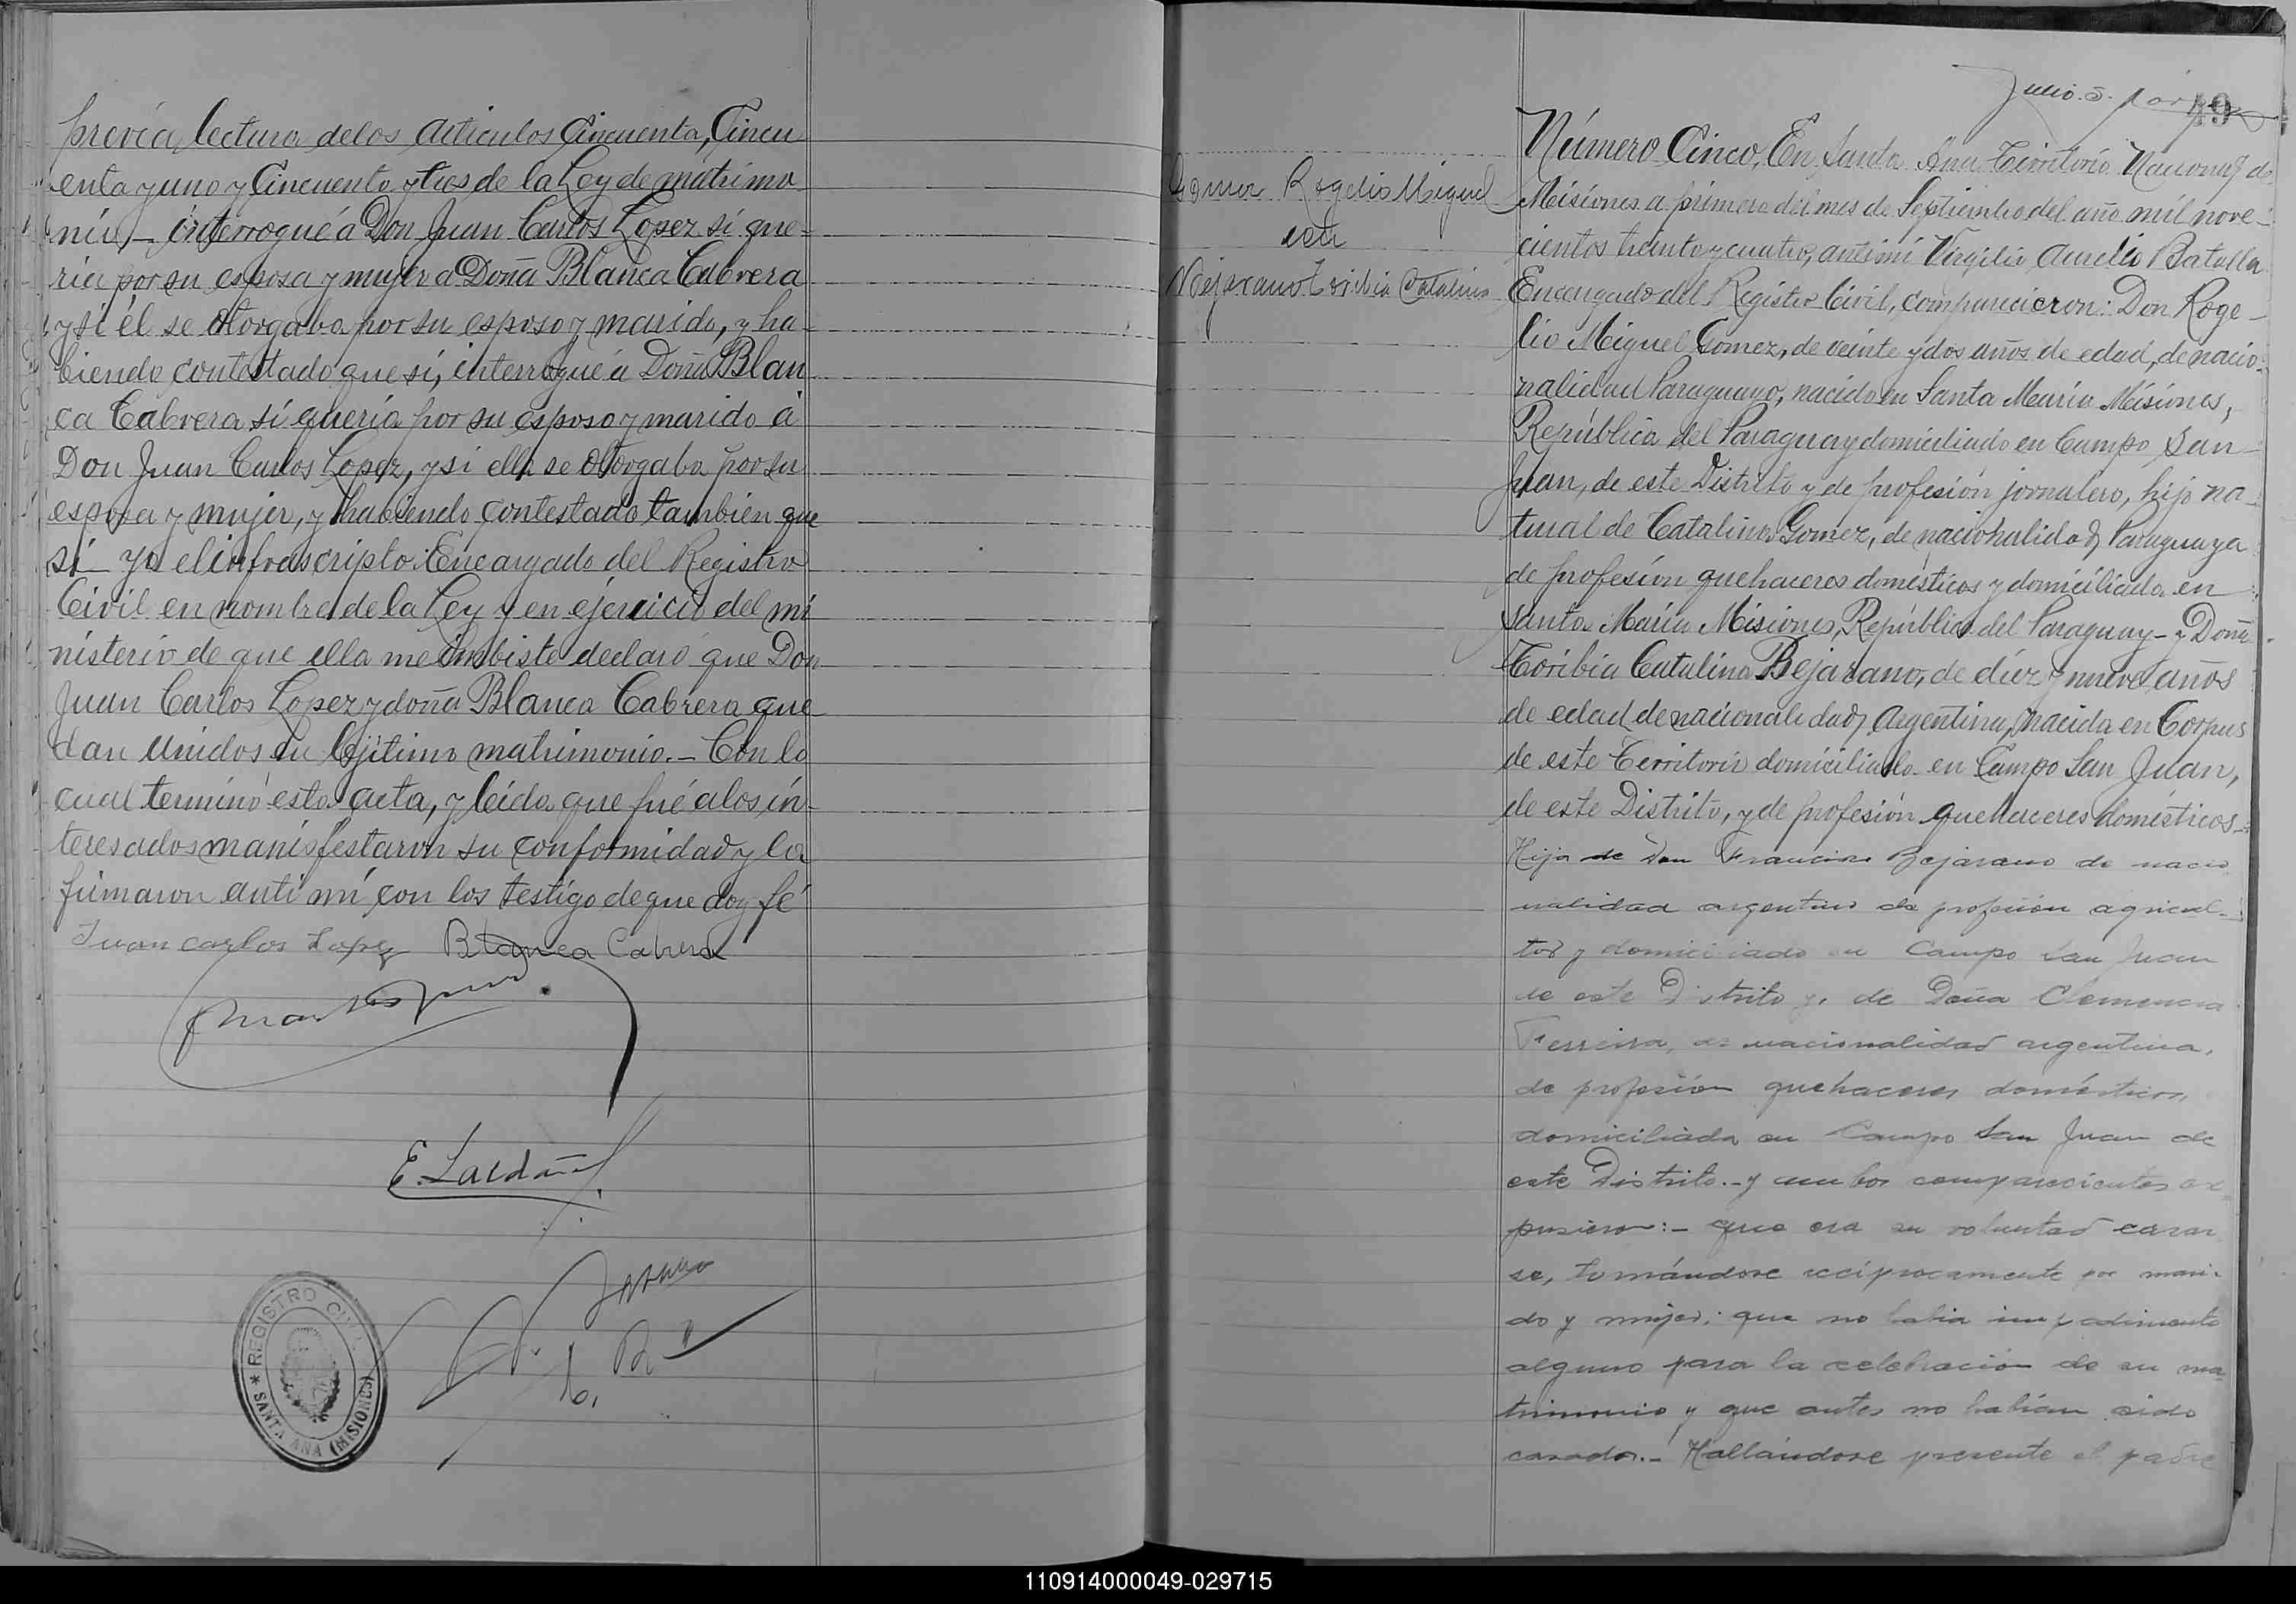 previa lectura de los Articulos Cincuenta, Cincu
enta y uno y Cincuenta y tres de la Ley de matrimo
nio,- interrogué á Don Juan Carlos Lopez si que-
ria por su esposa y mujer a Doña Blanca Cabrera
y si él se otorgaba por su esposo y marido, y ha-
biendo contestado que sí, interrogué á Doña Blan
ca Cabrera si queria por su esposo y marido á
Don Juan Carlos Lopez, y si ella se otorgaba por su
esposa y mujer, y habiendo contestado tambien que
sí - yo el infrascripto Encargado del Registro
Civil en nombre de la Ley y en ejercicio del mi
nisterio de que ella me imbiste declaro que Don
Juan Carlos Lopez y doña Blanca Cabrera que
dan unidos en lejitimo matrimonio.- Con lo
cual terminó esta acta, y leida que fué a los in-
teresados manisfestaron su conformidad y la
firmaron anti mí con los testigo de que doy fé
Juan Carlos Lopez Blanca Cabrera
REGISTRO CIVIL
* SANTA ANA (MISIONES)
49
Gomez Rogelio Miguel
con
Bejarano Toribia Catalina
Número Cinco, En Santa Ana Territorio Nacional de
Misiones a primero del mes de Septiembre del año mil nove-
cientos treinta y cuatro, anti mí Virgilio Aurelio Batalla
Encargado del Registro Civil, comparecieron: Don Roge-
lio Miguel Gomez, de veinte y dos años de edad, de nacio-
nalidad Paraguayo, nacido en Santa María Misiones,
República del Paraguay domiciliado en Campo San
Juan, de este Distrito y de profesión jornalero, hijo na-
tural de Catalina Gomez, de nacionalidad Paraguaya
de profesión quehaceres domésticos y domiciliada en
Santa María Misiones, República del Paraguay - y Doña
Toribia Catalina Bejarano, de diez y nueve años
de edad de nacionalidad Argentina, nacida en Corpus
de este Territorio domiciliada en Campo San Juan,
de este Distrito, y de profesión quehaceres domésticos-
Hija de Don Francisco Bejarano de nacio
nalidad argentino de profesión agricul-
tor y domiciliado en Campo San Juan
de este Distrito y, de Doña Clemencia
Ferreira, de nacionalidad argentina,
de profesión quehaceres domésticos,
domiciliada en Campo San Juan de
este Distrito.- y ambos comparecientes ex-
pusieron:- que era su voluntad casar
se, tomándose recíprocamente por mari-
do y mujer; que no habia impedimento
alguno para la celebración de su ma
trimonio y que antes no habían sido
casados.- Hallándose presente el padre
110914000049-029715